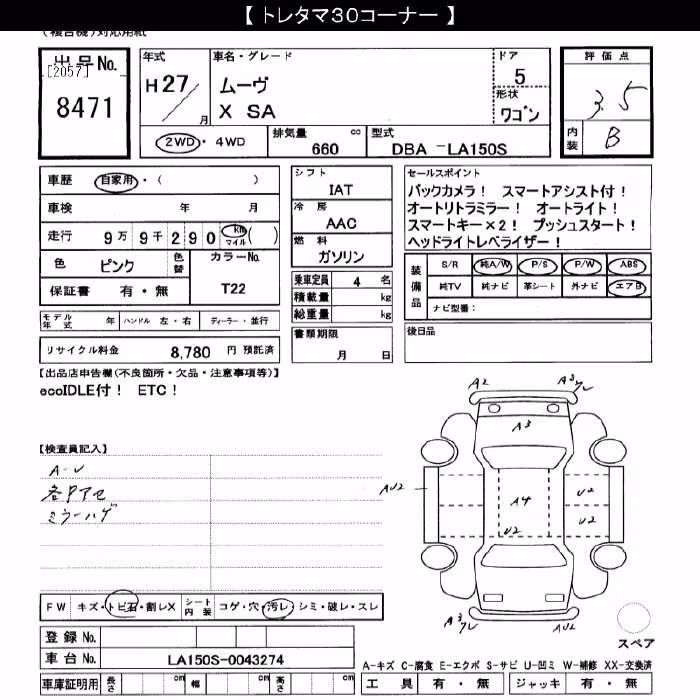 【 トレタマ30コーナー 】
(複合機)対応用紙
出品No.
[2057]
8471
年式
H 27/ 月
車名・グレード
ムーヴ
X SA
ドア
5
形状
ワゴン
評価点
3.5
内装
B
2WD・4WD
排気量 660 cc
型式 DBA -LA150S
車歴 自家用・( )
車検 年 月
走行 9万 9千 2 9 0 km マイル ( )
色 ピンク 色替
カラーNo.
T22
保証書 有・無
モデル年式 年 ハンドル 左・右 ディーラー・並行
リサイクル料金 8,780 円 預託済
シフト
IAT
冷房
AAC
燃料
ガソリン
乗車定員 4 名
積載量 kg
総重量 kg
書類期限
月 日
セールスポイント
バックカメラ! スマートアシスト付!
オートリトラミラー! オートライト!
スマートキー×2! プッシュスタート!
ヘッドライトレベライザー!
装備品
S/R 純A/W P/S P/W ABS
純TV 純ナビ 革シート 外ナビ エアB
ナビ型番:
後日品
【出品店申告欄(不良箇所・欠品・注意事項等)】
ecoIDLE付! ETC!
【検査員記入】
A-U
各Pアセ
ミラーハゲ
A2
A3
A3
AU2
A4
U2
U2
U2
A3
AU2
FW キズ・トビ石・割レX シート内装 コゲ・穴・汚レ・シミ・破レ・スレ
登録 No.
車台 No. LA150S-0043274
車庫証明用 長さ cm 幅 cm 高さ cm
スペア
A-キズ C-腐食 E-エクボ S-サビ U-凹ミ W-補修 XX-交換済
工具 有・無 ジャッキ 有・無